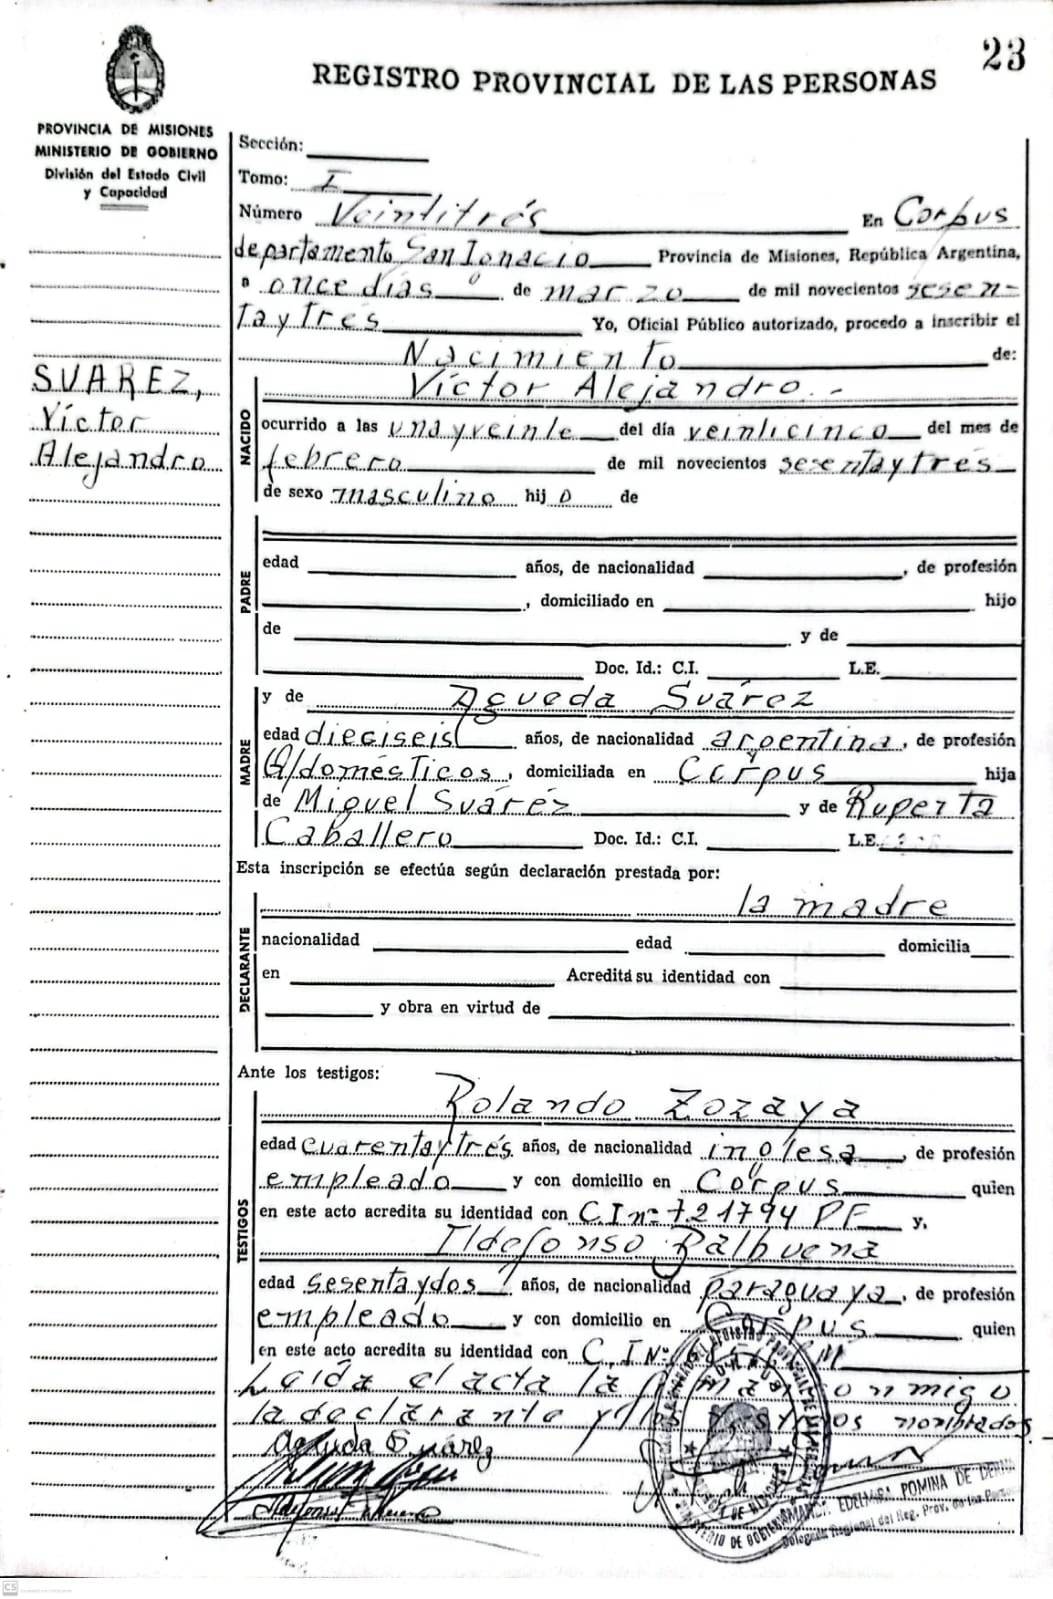 23
REGISTRO PROVINCIAL DE LAS PERSONAS
PROVINCIA DE MISIONES
MINISTERIO DE GOBIERNO
División del Estado Civil
y Capacidad
SUAREZ,
Víctor
Alejandro
Sección:
Tomo: I
Número Veintitrés En Corpus
departamento San Ignacio Provincia de Misiones, República Argentina,
a once días de marzo de mil novecientos sesen-
taytrés Yo, Oficial Público autorizado, procedo a inscribir el
Nacimiento de:
NACIDO
Víctor Alejandro.-
ocurrido a las unayveinte del día veinticinco del mes de
febrero de mil novecientos sesentaytrés
de sexo masculino hijo de
PADRE
edad años, de nacionalidad , de profesión
, domiciliado en hijo
de y de
Doc. Id.: C.I. L.E.
MADRE
y de Agueda Suárez
edad dieciseis años, de nacionalidad argentina, de profesión
Q/domésticos, domiciliada en Corpus hija
de Miguel Suárez y de Ruperta
Caballero Doc. Id.: C.I. L.E.
Esta inscripción se efectúa según declaración prestada por:
DECLARANTE
la madre
nacionalidad edad domicilia
en Acredita su identidad con
y obra en virtud de
Ante los testigos:
TESTIGOS
Rolando Zozaya
edad cuarentaytrés años, de nacionalidad inglesa, de profesión
empleado y con domicilio en Corpus quien
en este acto acredita su identidad con C.I nº 721794 PF y,
Ildefonso Balbuena
edad sesentaydos años, de nacionalidad paraguaya, de profesión
empleado y con domicilio en Corpus quien
en este acto acredita su identidad con C.I Nº
Leída el acta la conmigo
la declarante y los nombrados
Agueda Suárez
EDELMIRA POMINA DE
Delegada Regional del Reg. Prov. de las
CS